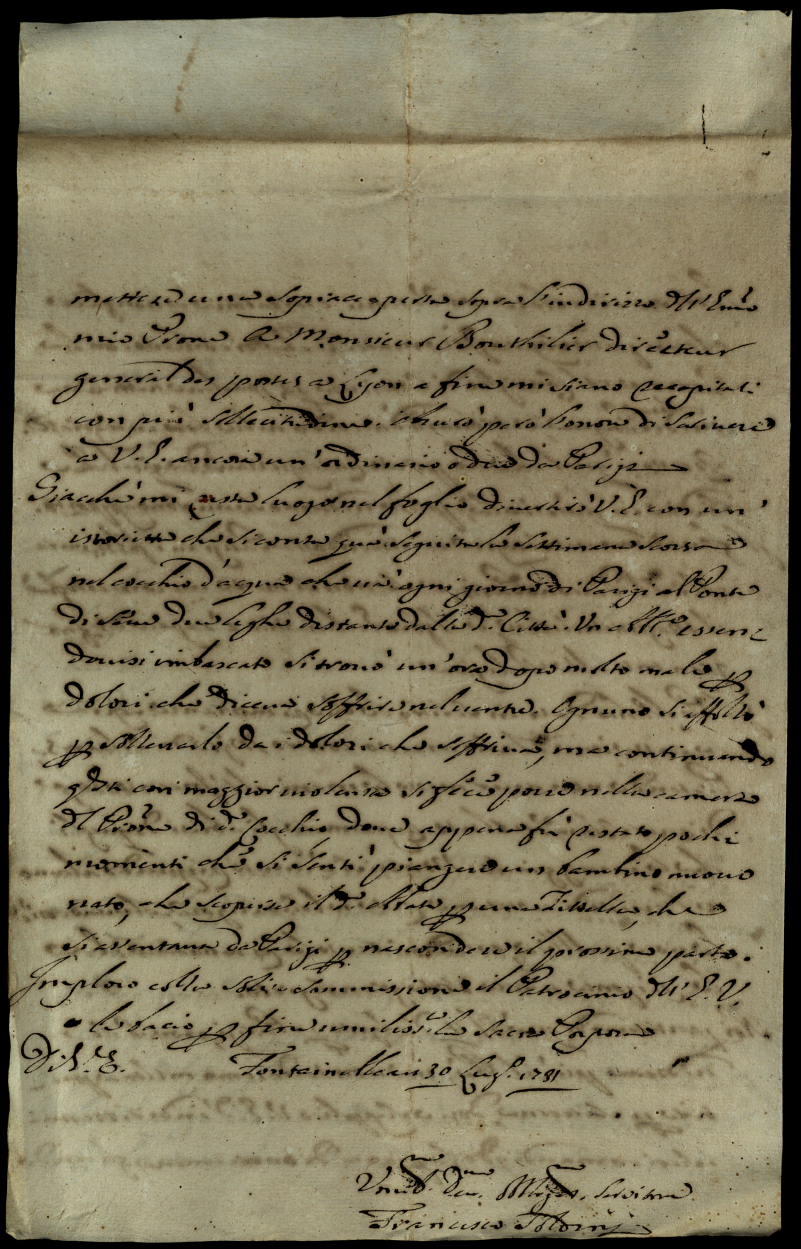 mettere una sopracoperta sopra l'indirizzo dll' Emo
mio Prone A Monsieur Bouthilier directeur
general des postes a Lyon a fine mi siano recapitati
con più sollecitudine. Avrò però l'onore di scrivere
a V. E. ancora un' ordinario o due da Parigi
Giacchè mi resta luogo nel foglio divertirò V. E. con un'
istorietta che si conta quà seguita la settimana scorsa
nel cocchio d'acqua che và ogni giorno di Parigi al Ponte
di Seve due leghe distante dalla da. Città. Un Abb.e essen=
dovisi imbarcato si trovò un' ora dopo molto male p
dolori che diceva soffrire nel ventre. Ognuno si affollò
p sollevarlo da i dolori che soffriva, ma continuando
qsti con maggior violenza si fece porre nella camera
dl Prone di do. Cocchio dove appena fù restato pochi
momenti che si sentì piangere un bambino nuovo
nato, che scoperse il do. Abbate p una Zittella, che
si assentava da Parigi p nascondere il prossimo parto.
Imploro colla solita sommissione il Patrocinio dll' E. V.
e le bacio p fine umilisste. la Sacra Porpora
Di V. E. Fontainebleau 30 Lug.o 1781
Umo. Devmo. Obligmo. Servitore
Francesco